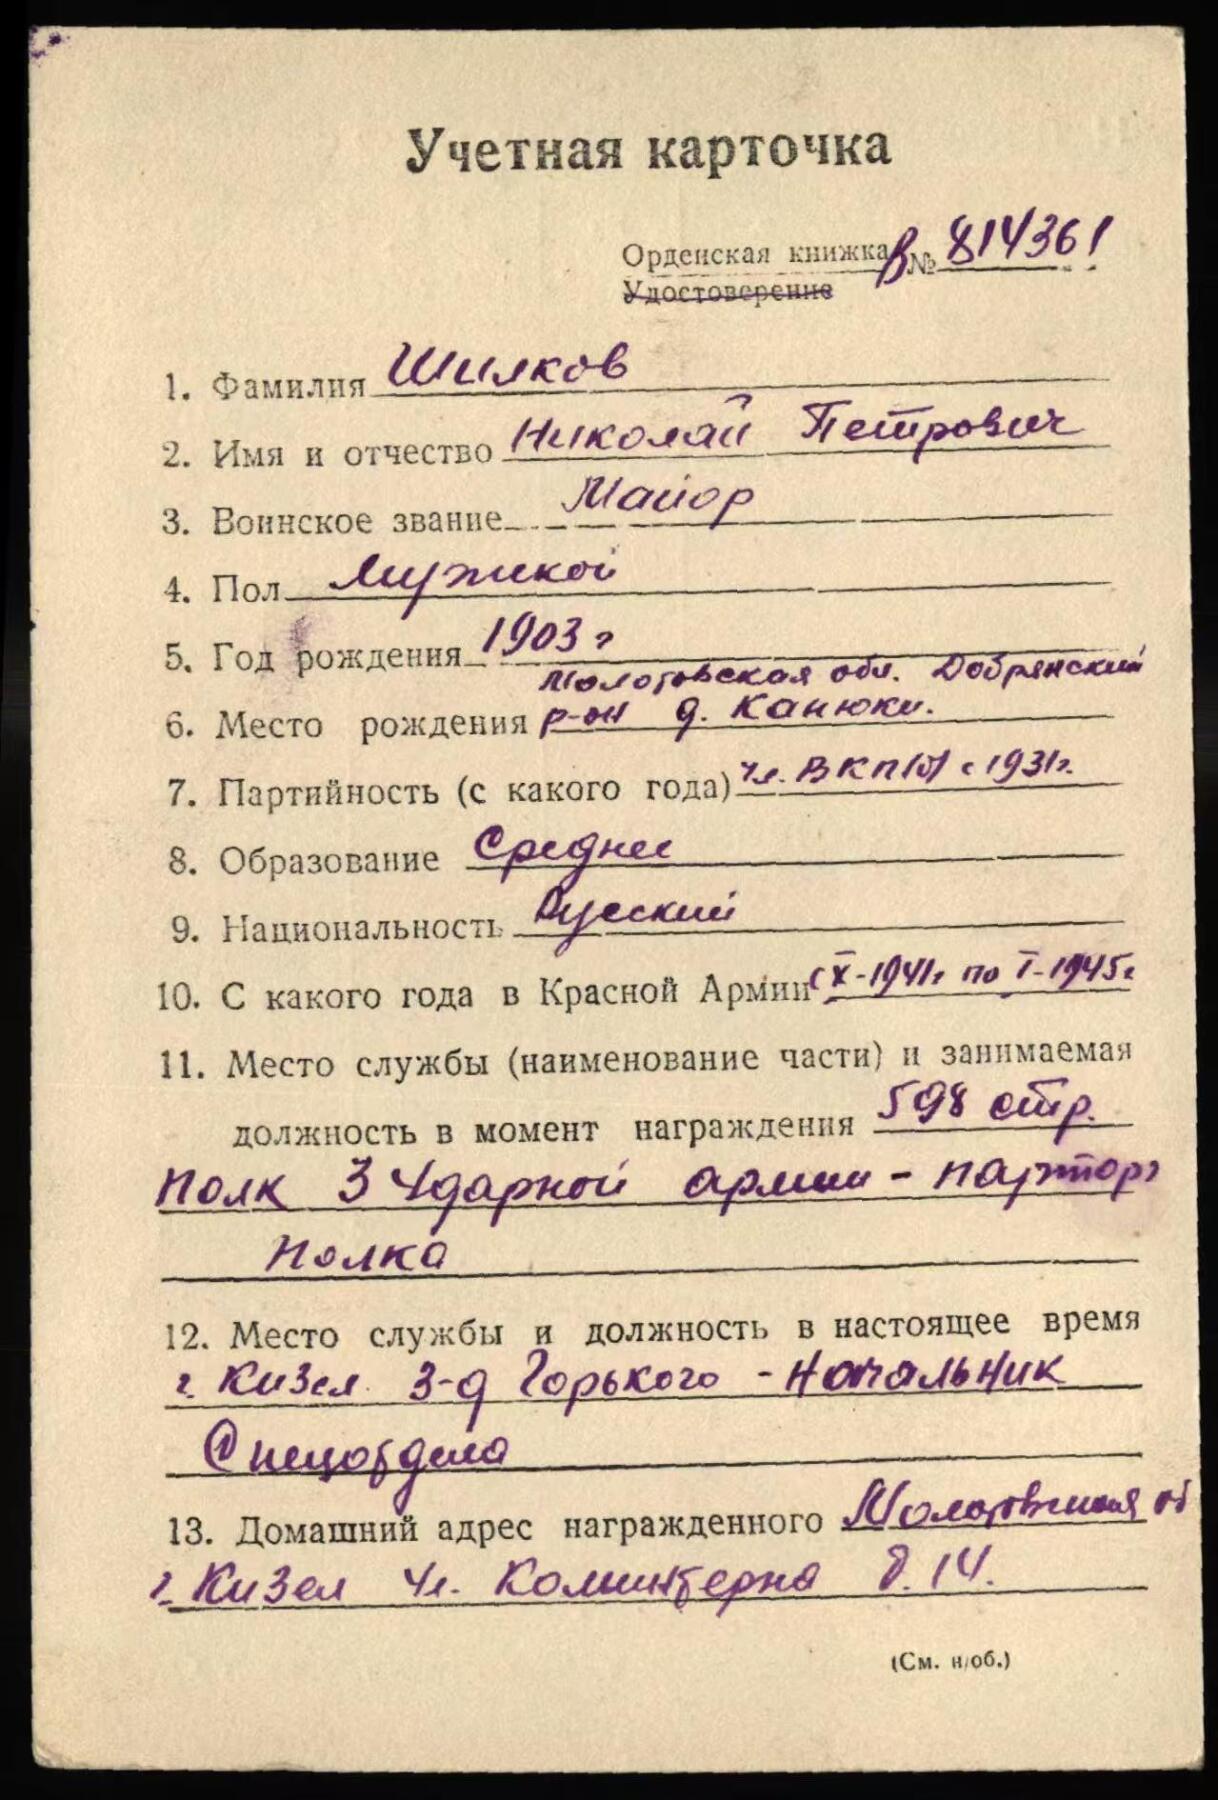 Учетная карточка
Орденская книжка В № 814361
Удостоверение
1. Фамилия Шилков
2. Имя и отчество Николай Петрович
3. Воинское звание Майор
4. Пол Мужской
5. Год рождения 1903 г
Молотовская обл. Добрянский
6. Место рождения р-он д. Канюки.
7. Партийность (с какого года) чл. ВКП(б) с 1931г.
8. Образование Среднее
9. Национальность Русский
10. С какого года в Красной Армии с X-1941г по I-1945г
11. Место службы (наименование части) и занимаемая
должность в момент награждения 598 стр.
полк 3 Ударной армии - парторг
полка
12. Место службы и должность в настоящее время
г. Кизел з-д Горького - Начальник
Спецотдела
13. Домашний адрес награжденного Молотовская об
г. Кизел ул. Коминтерна д. 14.
(См. н/об.)